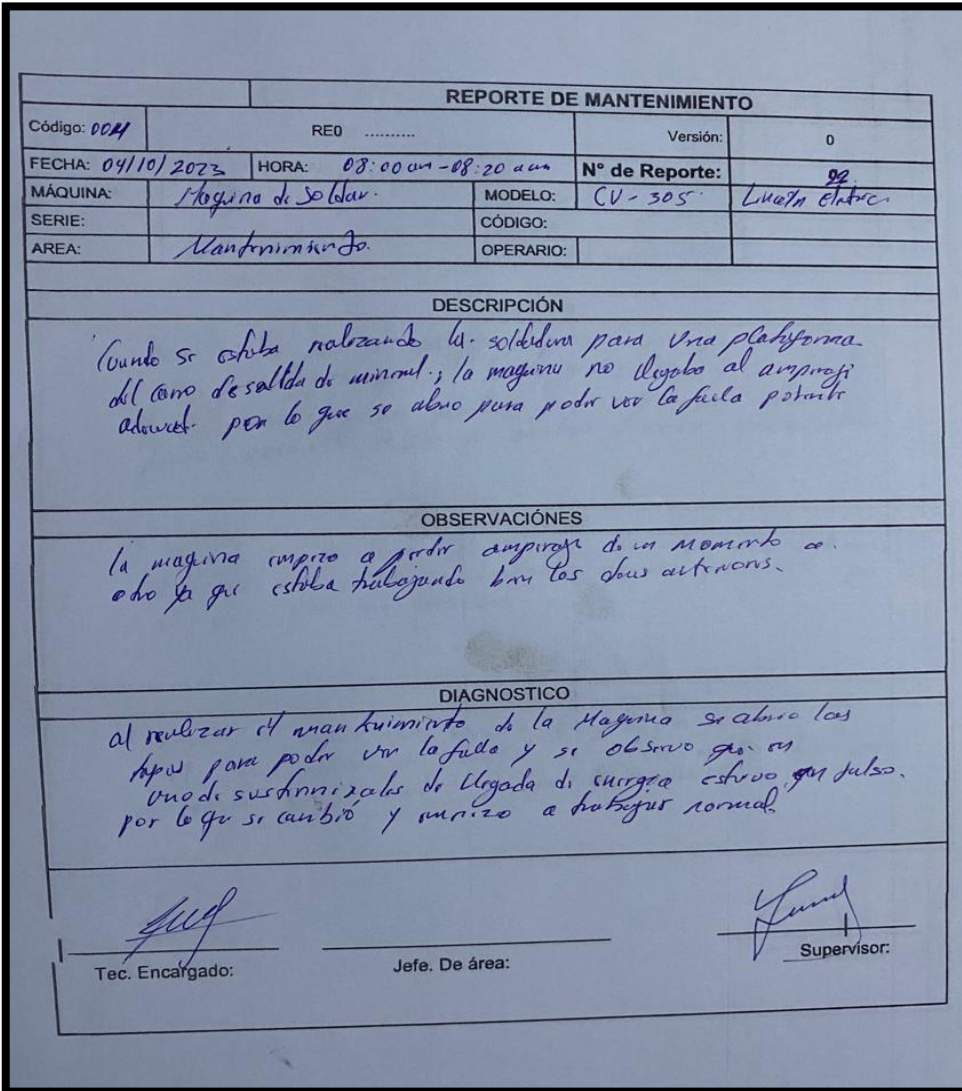 REPORTE DE MANTENIMIENTO
Código: 004 RE0 .......... Versión: 0
FECHA: 04/10/2023 HORA: 08:00 am - 08:20 am N° de Reporte: 02
MÁQUINA: Maquina de Soldar. MODELO: CV - 305 Lincoln
SERIE: CÓDIGO:
AREA: Mantenimiento. OPERARIO:
DESCRIPCIÓN
Cuando se estaba realizando la soldadura para una plataforma
del carro de salida de mineral; la maquina no llegaba al amperaje
por lo que se abrio para poder ver la falla
OBSERVACIÓNES
la maquina empezo a perder amperaje de un momento a
otro ya que estaba trabajando bien los dias anteriores.
DIAGNOSTICO
al realizar el mantenimiento de la Maquina se abrio las
tapas para poder ver la falla y se observo que en
uno de sus terminales de llegada de energia estuvo en falso.
por lo que se cambió y empezo a trabajar normal
Tec. Encargado: Jefe. De área: Supervisor: